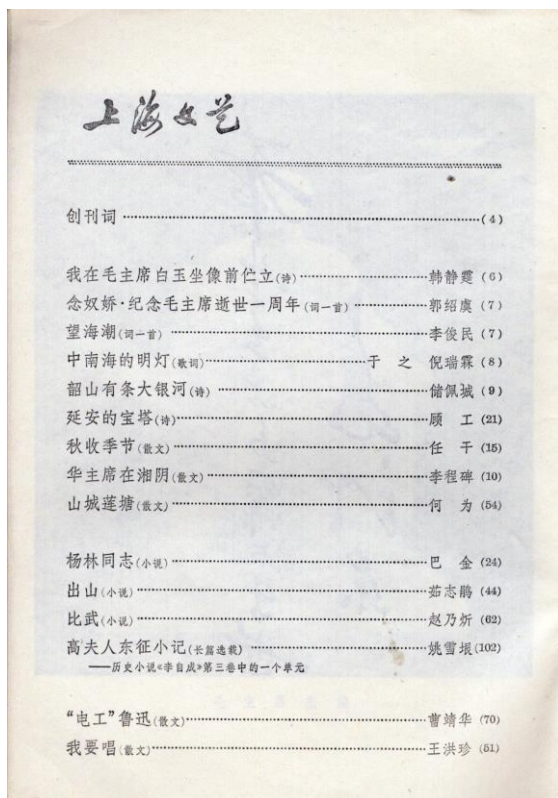 上海文艺
创刊词……(4)
我在毛主席白玉坐像前伫立(诗)……韩静霆 (6)
念奴娇·纪念毛主席逝世一周年(词一首)……郭绍虞 (7)
望海潮(词一首)……李俊民 (7)
中南海的明灯(歌词)……于 之 倪瑞霖 (8)
韶山有条大银河(诗)……储佩城 (9)
延安的宝塔(诗)……顾 工 (21)
秋收季节(散文)……任 干 (15)
华主席在湘阴(散文)……李程碑 (10)
山城莲塘(散文)……何 为 (54)
杨林同志(小说)……巴 金 (24)
出山(小说)……茹志鹃 (44)
比武(小说)……赵乃炘 (62)
高夫人东征小记(长篇选载)……姚雪垠 (102)
——历史小说《李自成》第三卷中的一个单元
“电工”鲁迅(散文)……曹靖华 (70)
我要唱(散文)……王洪珍 (51)